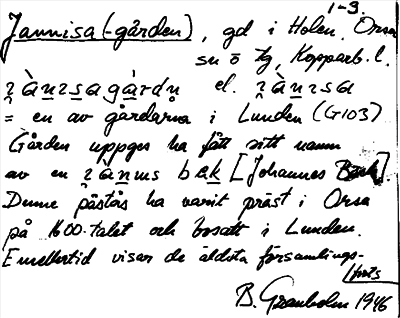 1-3.
Jannisa (-gården), gd i Holen, Orsa
sn o tg, Kopparb. l.
el.
= en av gårdarna i Lunden (G103)
Gården uppges ha fått sitt namn
av en bak [Johannes Back]
Denne påstås ha varit präst i Orsa
på 1600-talet och bosatt i Lunden.
Emellertid visar de äldsta församlings-
B. Granholm 1946